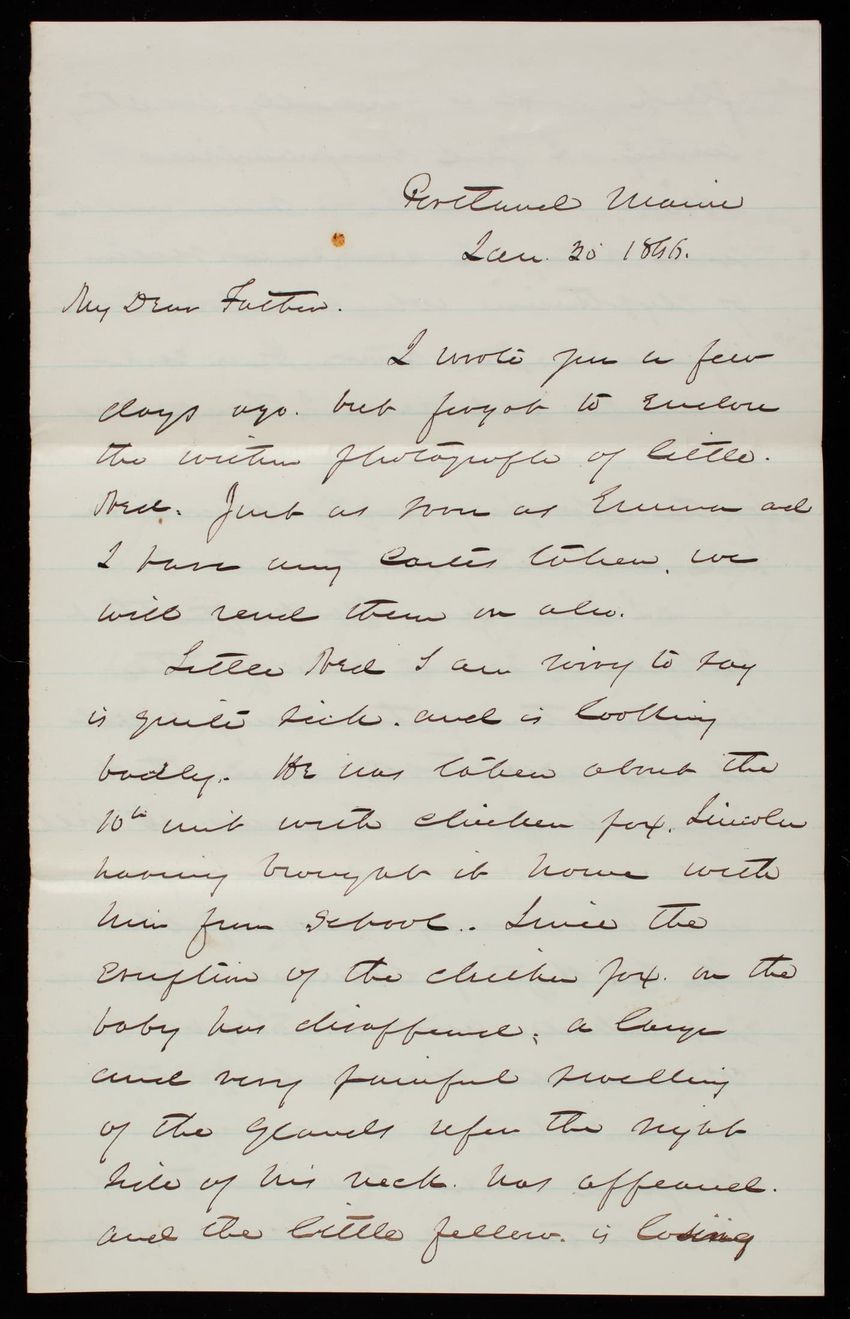 Portland Maine
Jan. 30 1866.
My Dear Father.
I wrote you a few
days ago. but forgot to enclose
the within photografh of little.
Ned. Just as soon as Emma ad
I have any Cartes taken, we
will send them on also.
Little Ned I am sorry to say
is quite sick. and is looking
badly. He was taken about the
10th with chicken pox. Lincoln
having brought it home with
him from school.. Since the
Eruption of the chicken pox. on the
baby has disappeared; a large
and very painful swelling
of the Glands upon the right
side of his neck. has appeared.
and the little fellow. is losing